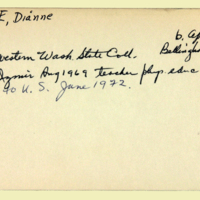 E, Dianne
b. Ap
Western Wash. State Coll. Bellingh
Izmir Aug 1969 teacher phys. educ
to U.S. June 1972.